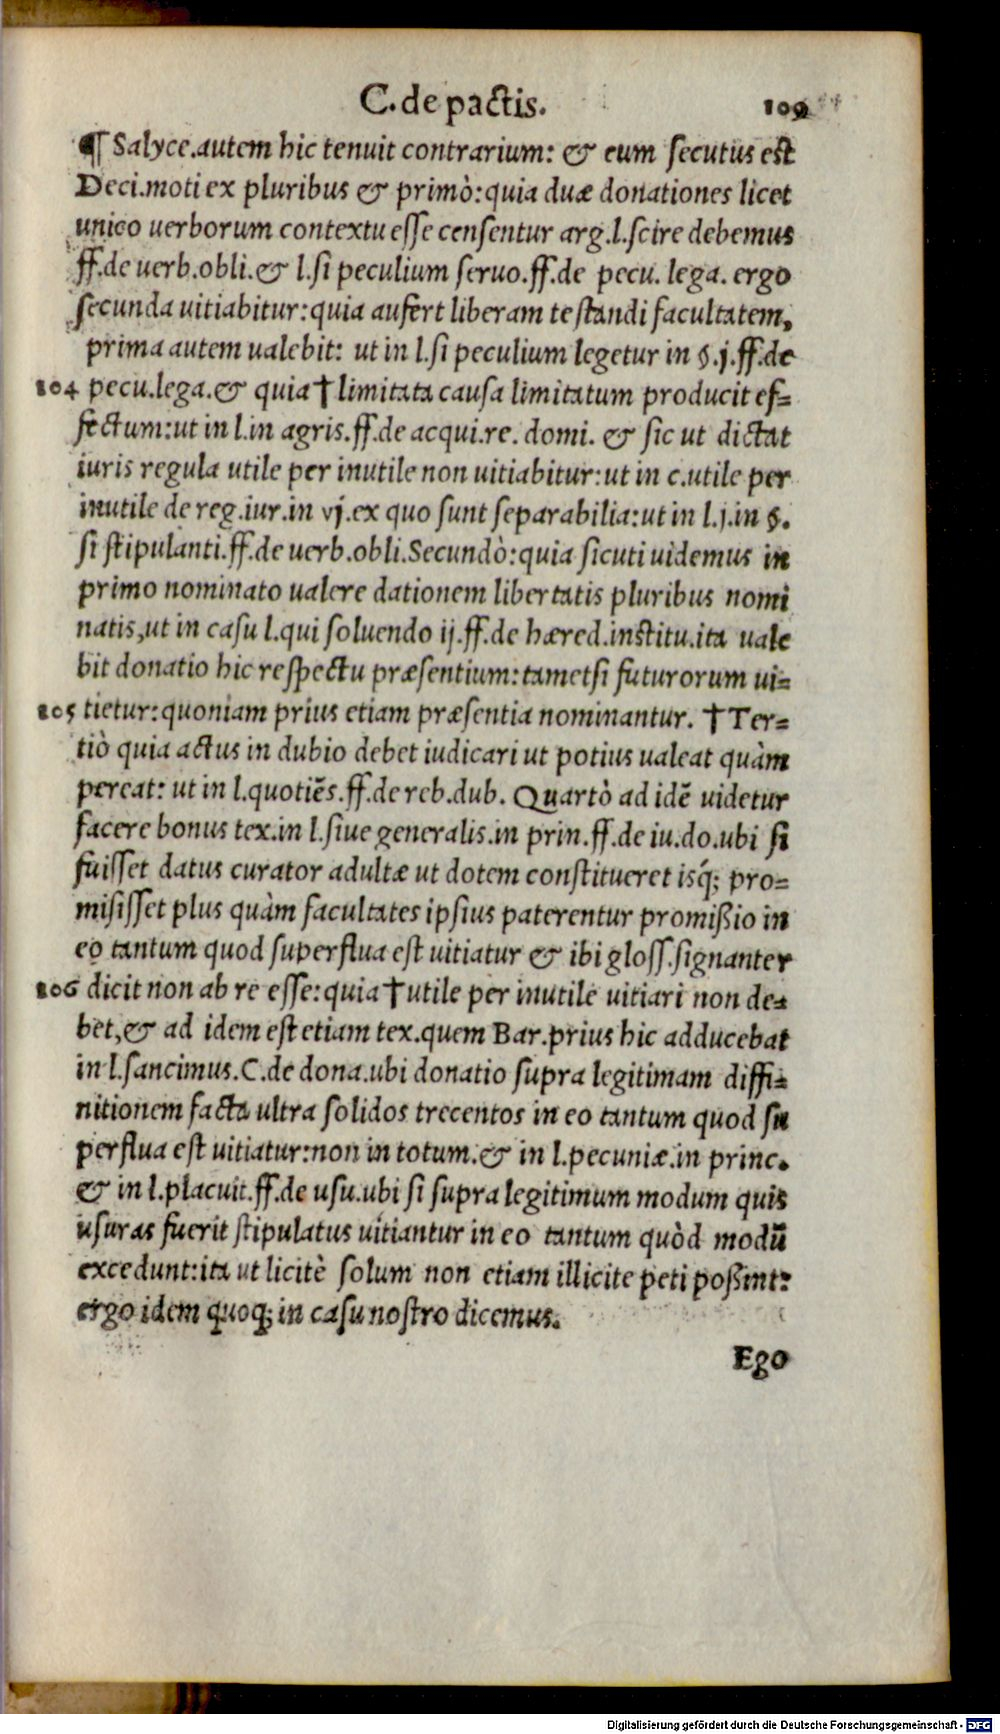 C. de pactis. 109
¶ Salyce.autem hic tenuit contrarium: & eum secutus est
Deci.moti ex pluribus & primò:quia duæ donationes licet
unico uerborum contextu esse censentur arg.l.scire debemus
ff.de uerb.obli.& l.si peculium seruo.ff.de pecu. lega. ergo
secunda uitiabitur:quia aufert liberam testandi facultatem,
prima autem ualebit: ut in l.si peculium legetur in §.j.ff.de
104 pecu.lega.& quia † limitata causa limitatum producit ef=
fectum:ut in l.in agris.ff.de acqui.re. domi. & sic ut dictat
iuris regula utile per inutile non uitiabitur:ut in c.utile per
inutile de reg.iur.in vj.ex quo sunt separabilia:ut in l.j.in §.
si stipulanti.ff.de uerb.obli.Secundò:quia sicuti uidemus in
primo nominato ualere dationem libertatis pluribus nomi
natis,ut in casu l.qui soluendo ij.ff.de hæred.institu.ita uale
bit donatio hic respectu præsentium:tametsi futurorum ui=
105 tietur:quoniam prius etiam præsentia nominantur. † Ter=
tiò quia actus in dubio debet iudicari ut potius ualeat quàm
pereat: ut in l.quotiẽs.ff.de reb.dub. Quartò ad idẽ uidetur
facere bonus tex.in l.siue generalis.in prin.ff.de iu.do.ubi si
fuisset datus curator adultæ ut dotem constitueret isq́; pro=
misisset plus quàm facultates ipsius paterentur promißio in
eo tantum quod superflua est uitiatur & ibi gloss.signanter
106 dicit non ab re esse:quia † utile per inutile uitiari non de=
bet,& ad idem est etiam tex.quem Bar.prius hic adducebat
in l.sancimus.C.de dona.ubi donatio supra legitimam diffi=
nitionem facta ultra solidos trecentos in eo tantum quod su
perflua est uitiatur:non in totum.& in l.pecuniæ.in princ.
& in l.placuit.ff.de usu.ubi si supra legitimum modum quis
usuras fuerit stipulatus uitiantur in eo tantum quòd modũ
excedunt:ita ut licitè solum non etiam illicite peti poßint:
ergo idem quoq; in casu nostro dicemus.
Ego
Digitalisierung gefördert durch die Deutsche Forschungsgemeinschaft - DFG